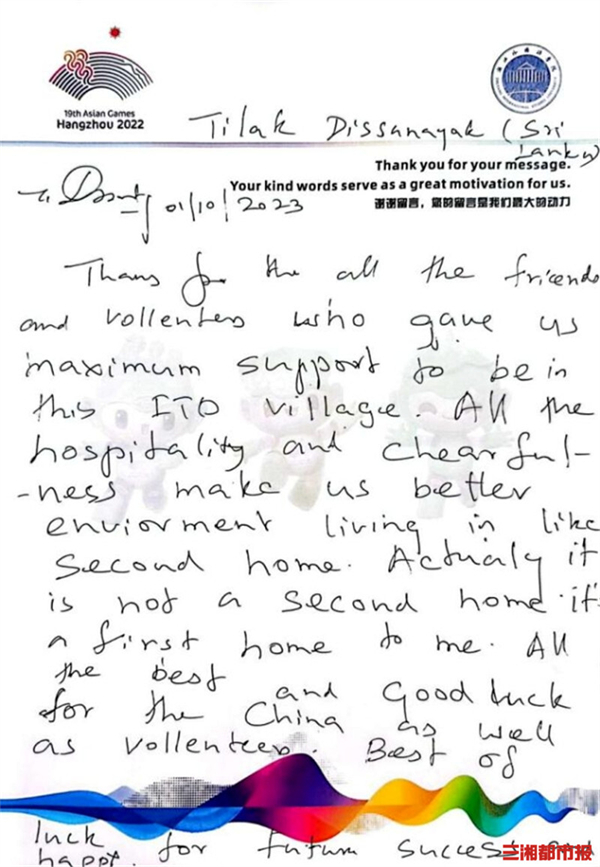 19th Asian Games
Hangzhou 2022
Tilak Dissanayak (Sri
Lanka)
Thank you for your message.
Your kind words serve as a great motivation for us.
谢谢留言，您的留言是我们最大的动力
01/10/2023
Thans for the all the friends
and vollenters who gave us
maximum support to be in
this ITO village. All the
hospitality and chearful-
-ness make us better
enviorment living in like
Second home. Actualy it
is not a second home. it
a first home to me. All
the best and Good luck
for the China as well
as vollenteer. Best of
luck for future success and
happt.
三湘都市报